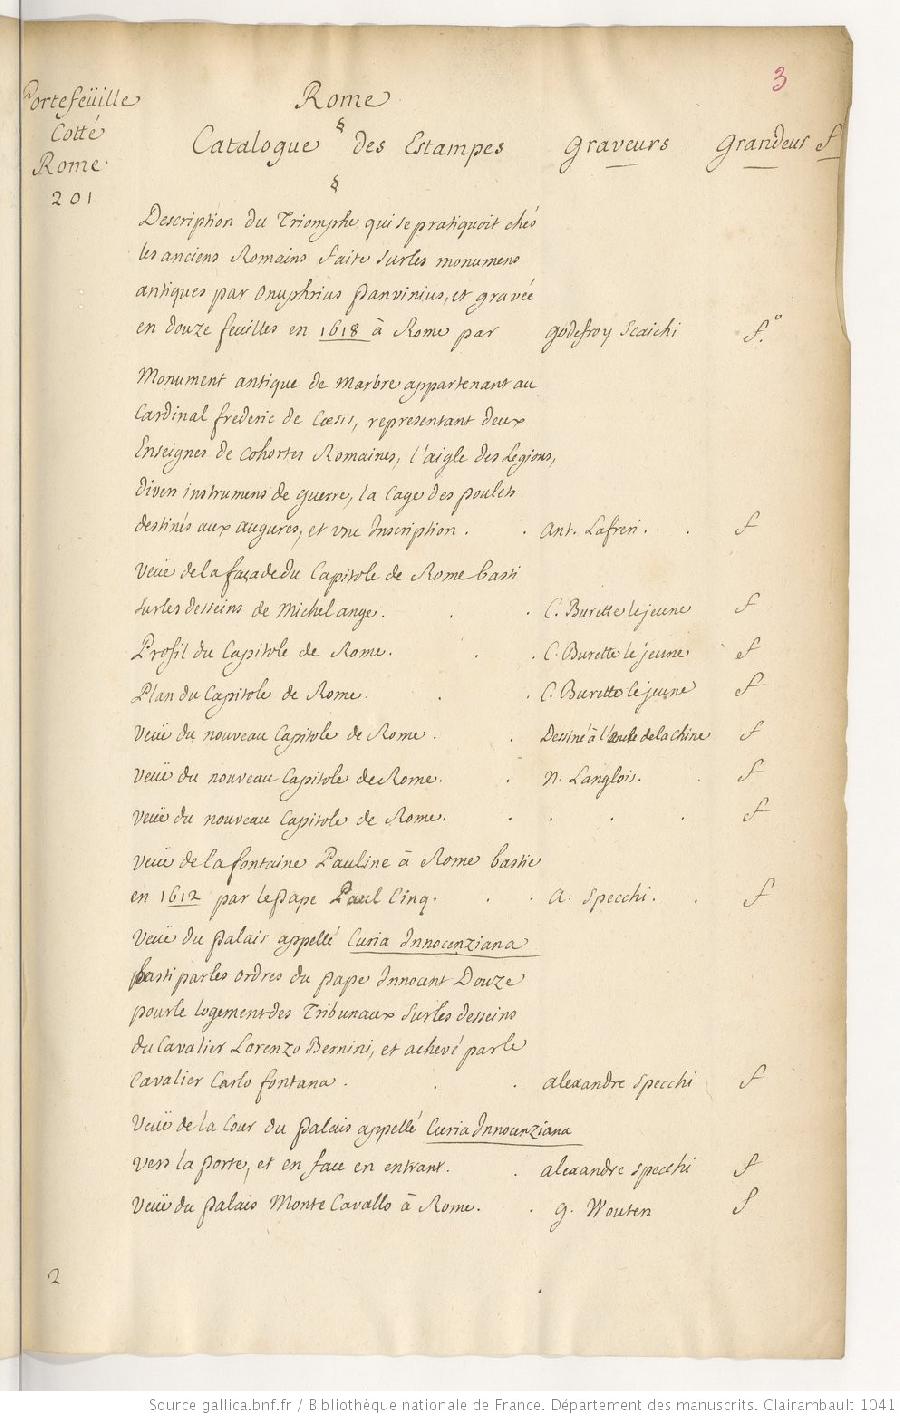 3
Portefeüille
Cotté
Rome
201
Rome
§
Catalogue des Estampes
Graveurs
Grandeur f
§
Description du Triomphe qui se pratiquoit chés
les anciens Romains faite sur les monumens
antiques par Onuphrius Panvinius, et gravée
en douze feuilles en 1618 à Rome par godefroy Scaichi f.°
Monument antique de Marbre appartenant au
Cardinal frederic de Cœsis, representant deux
Enseignes de Cohortes Romaines, l'aigle des Legions,
divers instrumens de guerre, la Cage des poulets
destinés aux augures, et une Inscription . . Ant. Lafreri . . f
Veuë de la façade du Capitole de Rome basti
sur les desseins de Michel ange . . . C. Burette le jeune f
Profil du Capitole de Rome . . . C. Burette le jeune f
Plan du Capitole de Rome . . . C. Burette le jeune f
Veuë du nouveau Capitole de Rome . . Dessiné à l'Encre de la Chine f
Veuë du nouveau Capitole de Rome . . N. Langlois . . f
Veuë du nouveau Capitole de Rome . . . . . f
Veuë de la fontaine Pauline à Rome bastie
en 1612 par le Pape Paul Cinq . . . A. Specchi . . f
Veuë du Palais appellé Curia Innocenziana
basti par les ordres du Pape Innocent Douze
pour le logement des Tribunaux sur les desseins
du Cavalier Lorenzo Bernini, et achevé par le
Cavalier Carlo fontana . . . alexandre Specchi f
Veuë de la Cour du palais appellé Curia Innocenziana
vers la porte, et en face en entrant . . alexandre Specchi f
Veuë du palais Monte Cavallo à Rome . . g. Wouten f
2
Source gallica.bnf.fr / Bibliothèque nationale de France. Département des manuscrits. Clairambault 1041